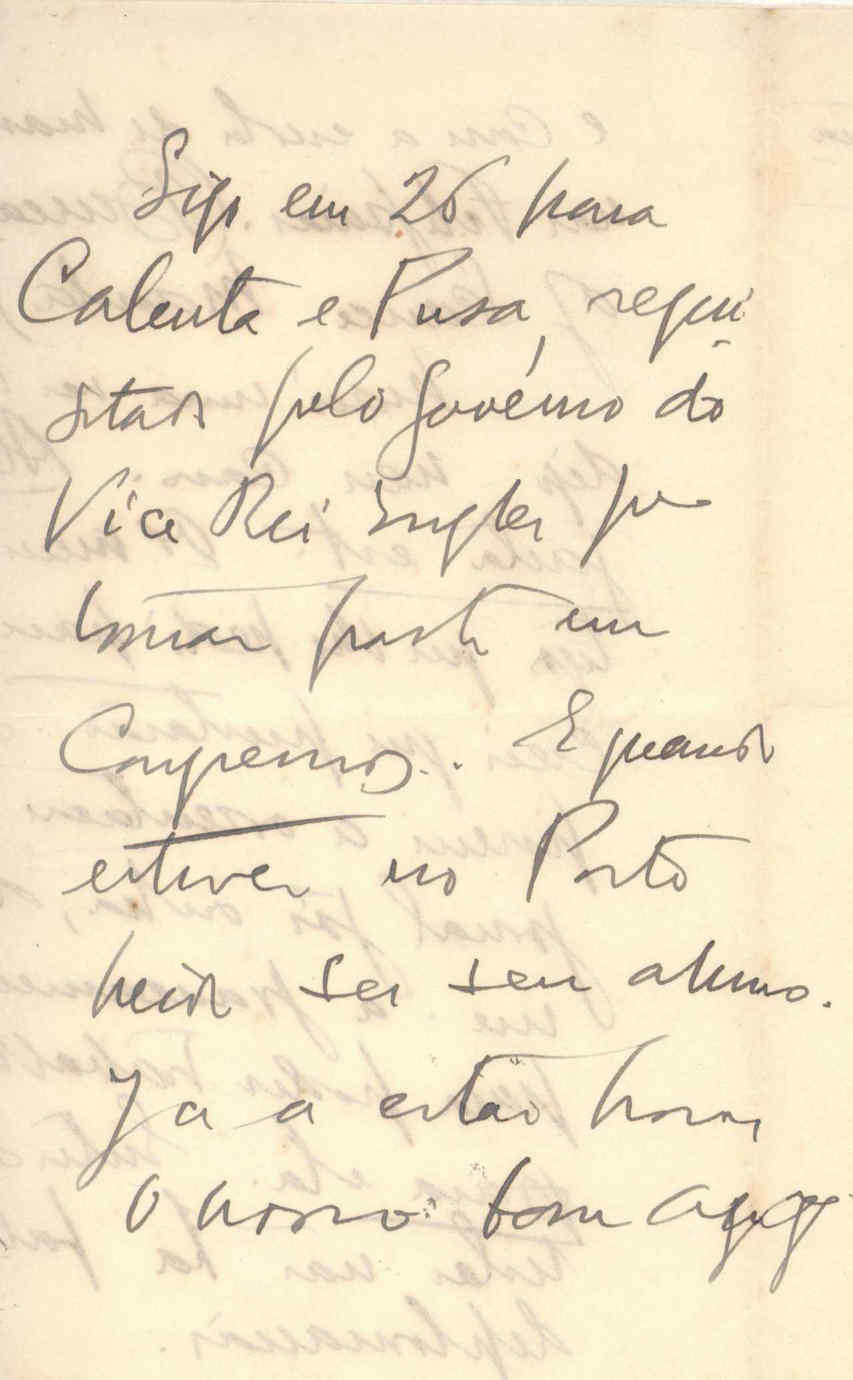 Sigo em 26 para
Calcutá e Pusa, requi-
sitado pelo Govêrno do
Vice Rei Inglez pa
tomar parte em
Congressos. E quando
estiver no Porto
heide ser seu alumno.
Ja a estas horas
o nosso bom